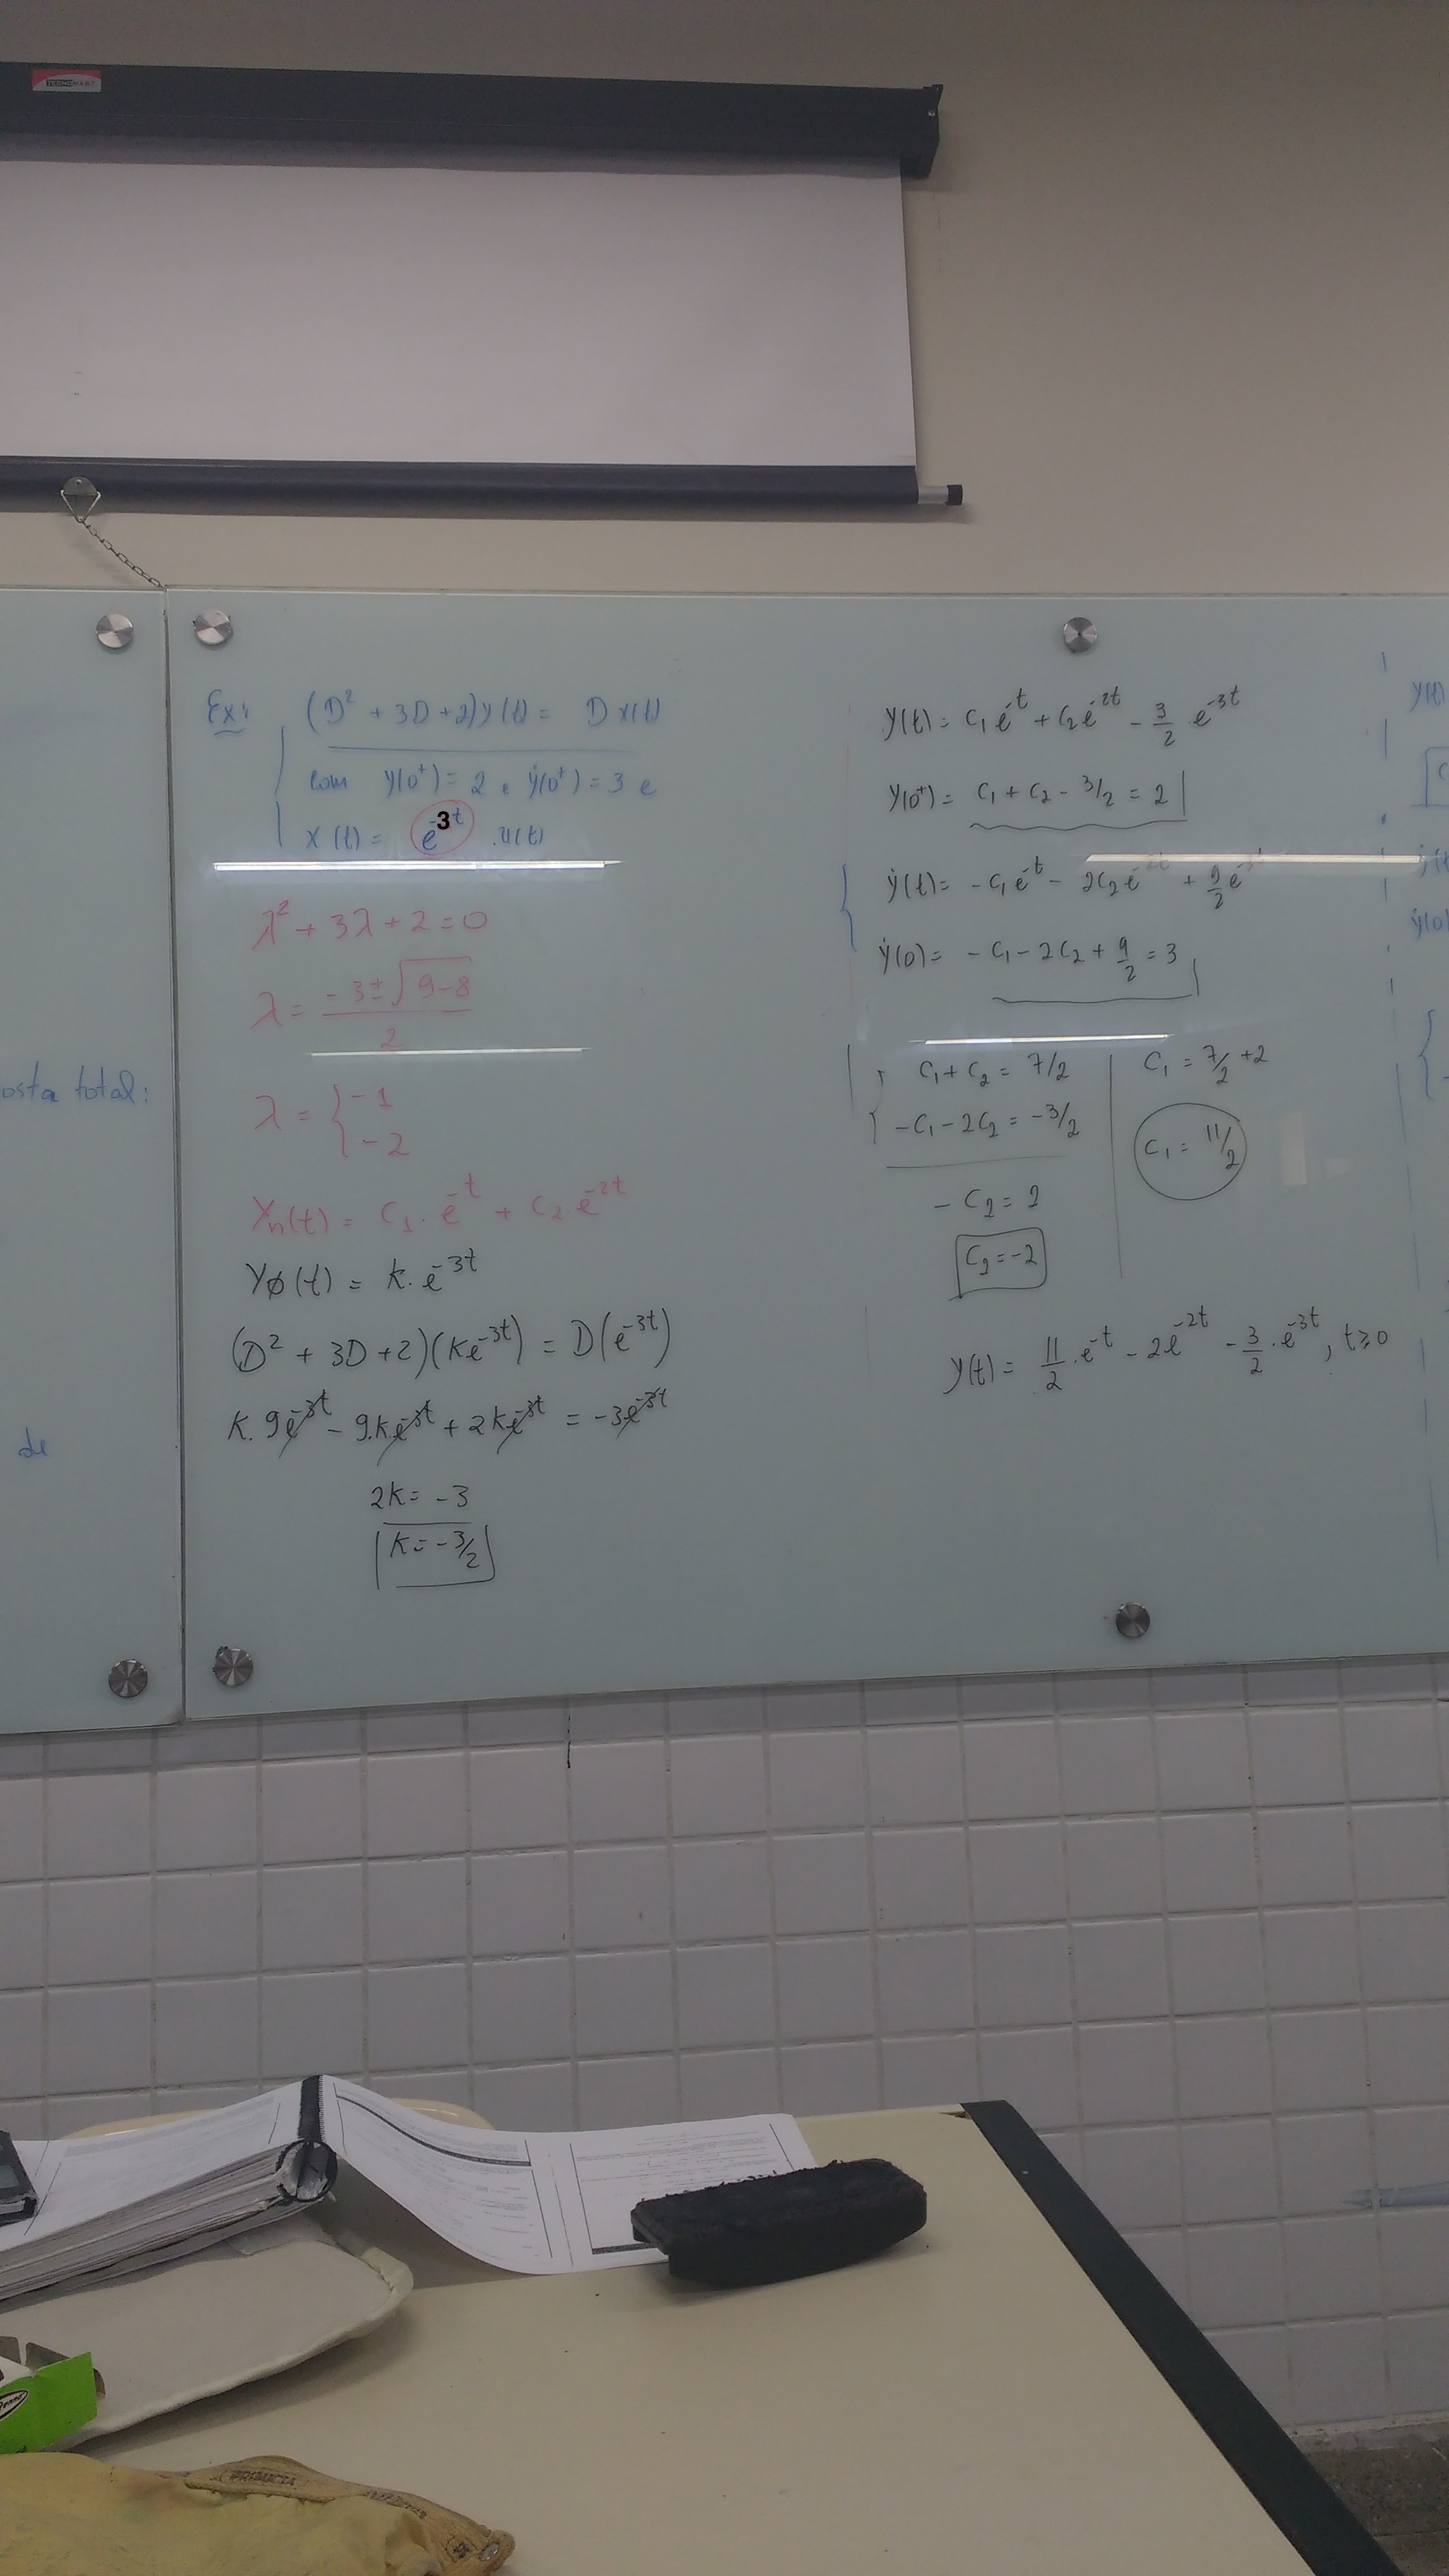 TECNOMART
Ex:
(D² + 3D + 2) y(t) = D x(t)
com y(0⁺) = 2 e ẏ(0⁺) = 3 e
x(t) = e⁻³ᵗ . u(t)
λ² + 3λ + 2 = 0
λ = -3 ± √9-8 / 2
λ = { -1
-2
Yn(t) = C₁. e⁻ᵗ + C₂. e⁻²ᵗ
Yø(t) = K. e⁻³ᵗ
(D² + 3D + 2)(Ke⁻³ᵗ) = D(e⁻³ᵗ)
K. 9e⁻³ᵗ - 9.Ke⁻³ᵗ + 2Ke⁻³ᵗ = -3e⁻³ᵗ
2K = -3
K = -3/2
y(t) = C₁e⁻ᵗ + C₂e⁻²ᵗ - 3/2 e⁻³ᵗ
y(0⁺) = C₁ + C₂ - 3/2 = 2
ẏ(t) = -C₁e⁻ᵗ - 2C₂e⁻²ᵗ + 9/2 e⁻³ᵗ
ẏ(0) = -C₁ - 2C₂ + 9/2 = 3
C₁ + C₂ = 7/2
-C₁ - 2C₂ = -3/2
- C₂ = 2
C₂ = -2
C₁ = 7/2 + 2
C₁ = 11/2
y(t) = 11/2 .e⁻ᵗ - 2e⁻²ᵗ - 3/2 .e⁻³ᵗ, t≥0
osta total:
de
y(t)
ẏ(0)